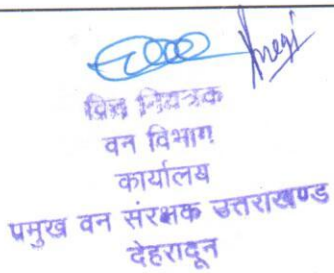 negi
वित्त नियंत्रक
वन विभाग
कार्यालय
प्रमुख वन संरक्षक उत्तराखण्ड
देहरादून